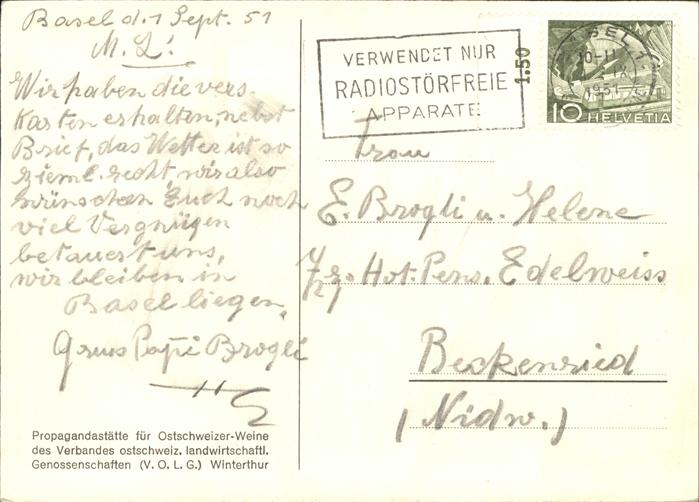 Basel d. 1 Sept. 51
M. L!
Wir haben die vers.
Karten erhalten, nebst
Brief, das Wetter ist so
zieml. recht, wir also
wünschen Euch noch
viel Vergnügen
betauert uns,
wir bleiben in
Basel liegen.
Gruss Papi Brogli
Propagandastätte für Ostschweizer-Weine
des Verbandes ostschweiz. landwirtschaftl.
Genossenschaften (V. O. L. G.) Winterthur
VERWENDET NUR
RADIOSTÖRFREIE
APPARATE
1.50
BASEL 1
10-11
1951
10 HELVETIA
Frau
E. Brogli u. Helene
Hot. Pens. Edelweiss
Beckenried
(Nidw.)